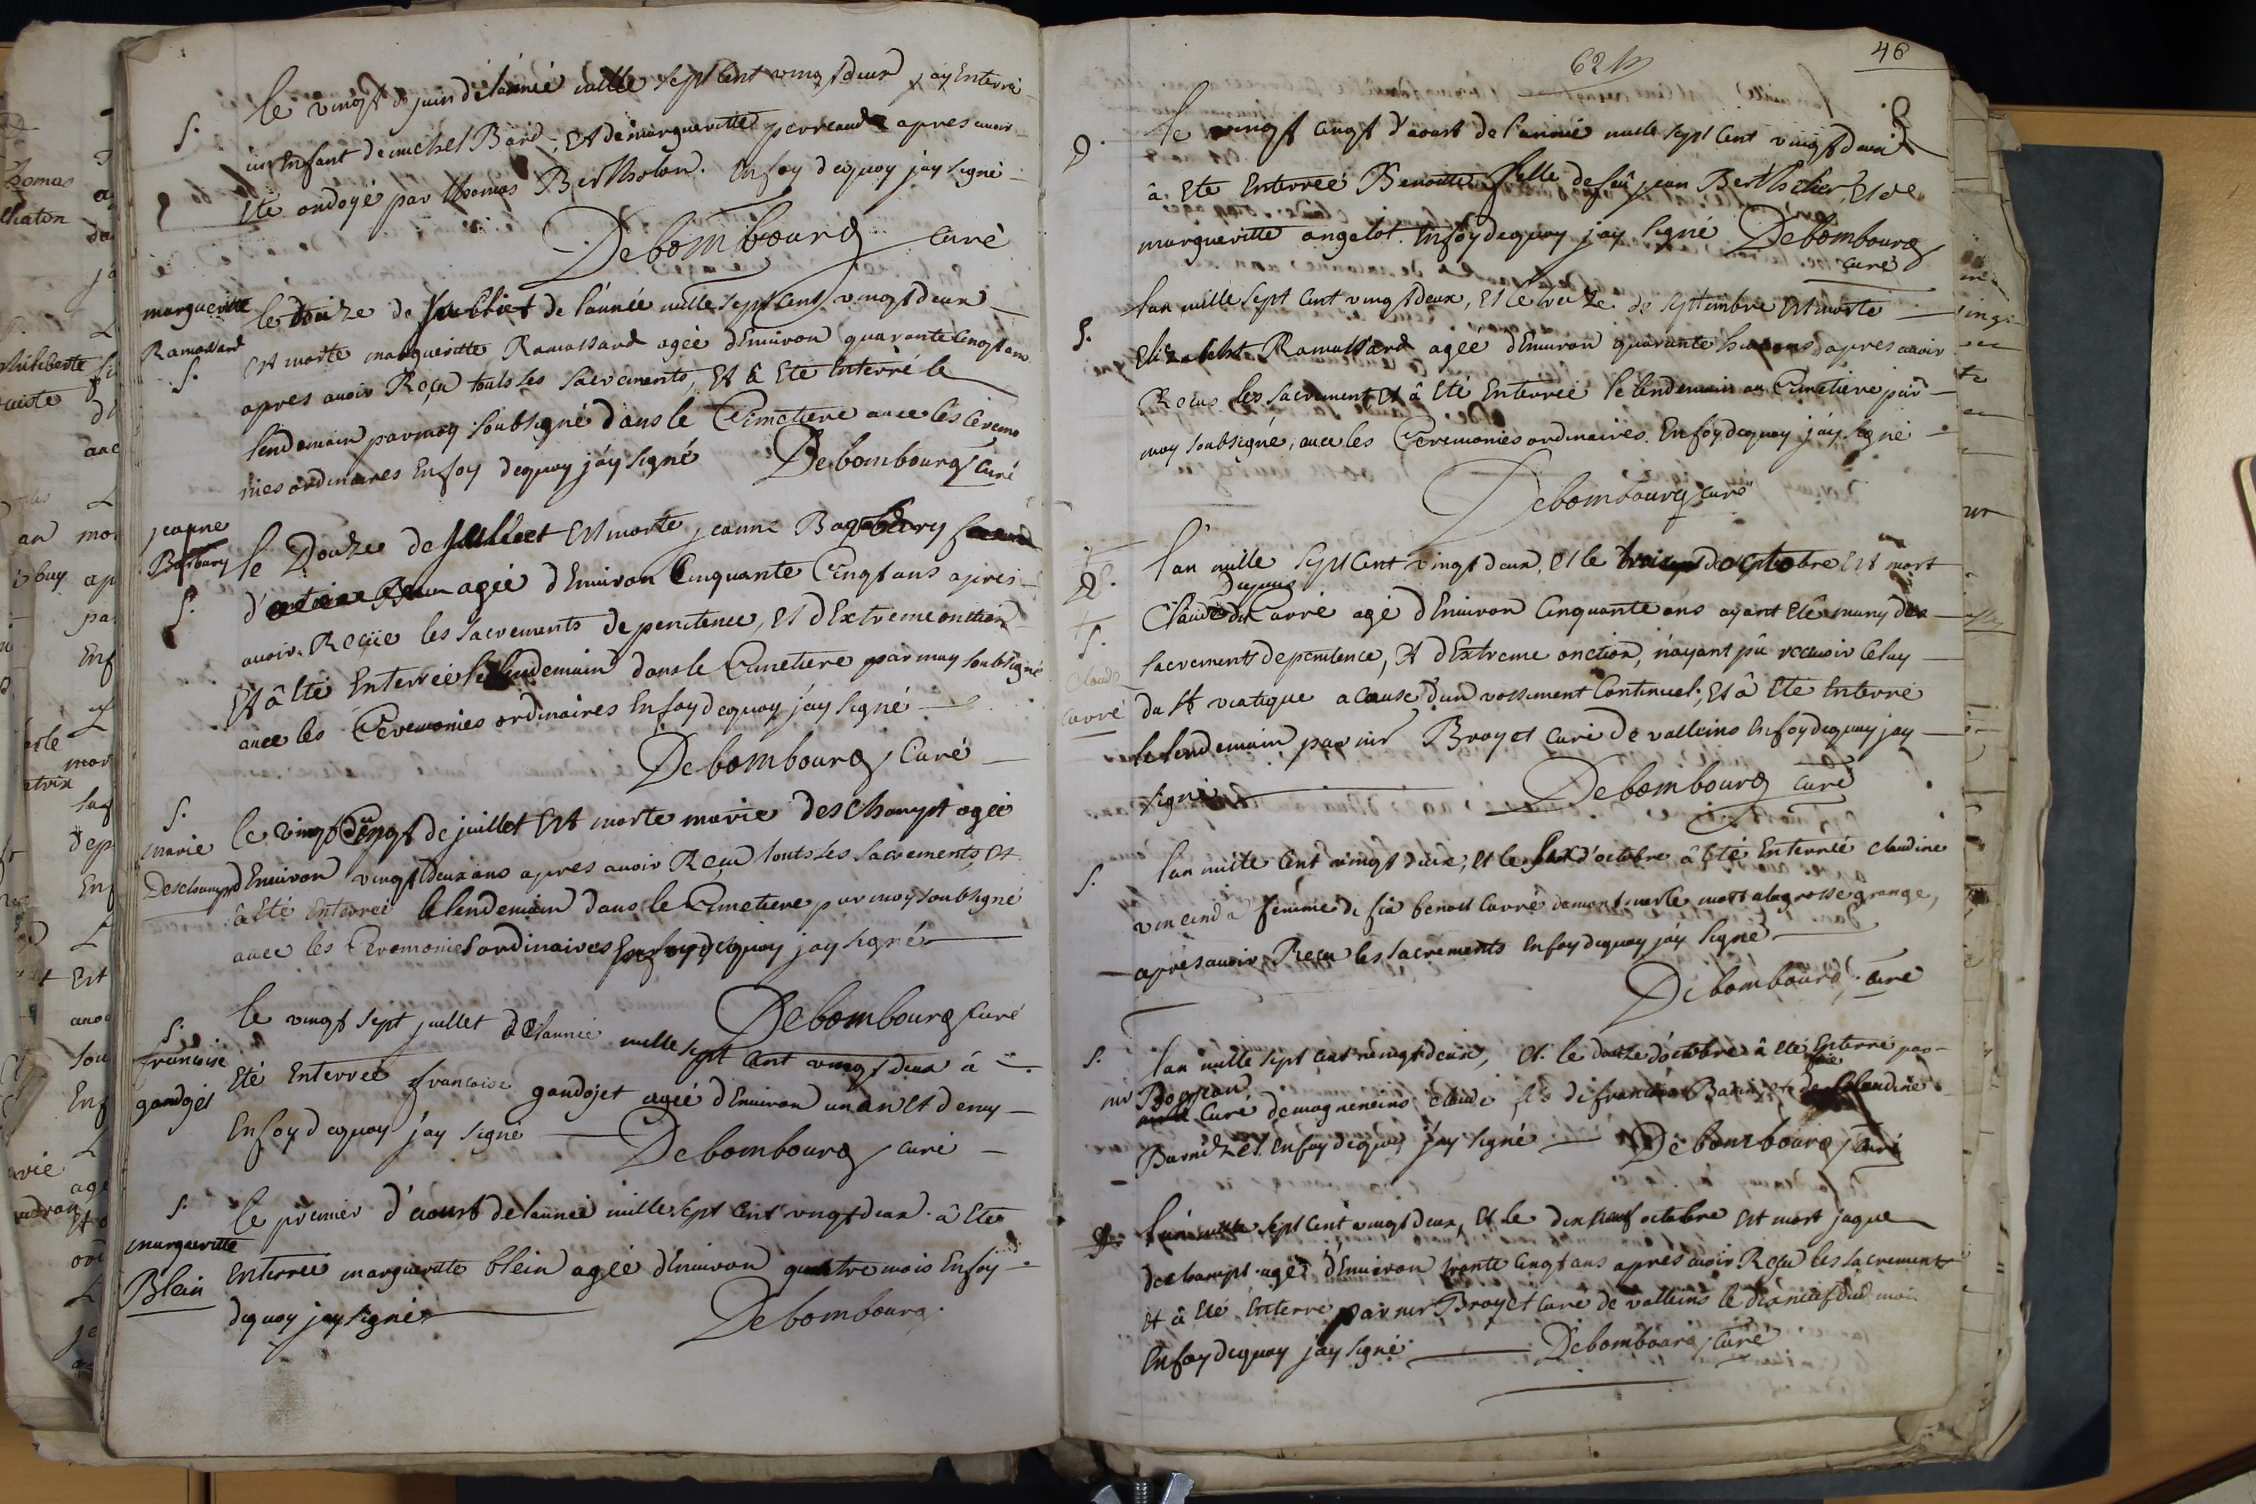 S.
le vingt & juin de l'année mille sept cent vingt deux jay Enterré
un Enfant de michel Bard, Et de margueritte perreaud apres avoir
Eté ondoyé par thomas Bertholon. En foy dequoy jay signé
Debombourg Curé
margueritte
Ramassard
S.
le treize de Juilliet de l'année mille sept cent vingt deux
est morte margueritte Ramassard agée d'Environ quarante cinq ans
apres avoir Reçu touts les sacrements, Et â Eté Enterré le
lendemain par moy soubsigné dans le Cimetiere avec les ceremo
nies ordinaires En foy dequoy j'ay signé Debombourg Curé
jeanne
Barbary
S.
le Douze de Juilliet Est morte jeanne
d'antoine agée d'Environ Cinquante Cinq ans apres
avoir Reçüe les sacrements de penitence, Et d'Extreme onction
Et â Eté Enterrée le lendemain dans le Cimetiere par moy soubsigné
avec les Ceremonies ordinaires En foy dequoy j'ay signé
Debombourg Curé
S.
marie
Deschampt
le vingt Cinq de juillet Est morte marie deschampt agée
d'Environ vingt deux ans apres avoir Reçu touts les sacrements, Et
â Eté Enterrée le lendemain dans le Cimetiere par moy soubsigné
avec les Ceremonies ordinaires En foy dequoy jay signé
Debombourg Curé
S.
francoise
gandojet
le vingt sept juillet de l'année mille sept cent vingt deux â
Eté Enterrée francoise gandojet agée d'Environ un an Et demy
En foy dequoy j'ay signé Debombourg Curé
S.
margueritte
Blein
le premier d'aoust de l'année mille sept cent vingt deux â Eté
Enterrée margueritte blein agée d'Environ quattre mois En foy
dequoy jay signé Debombourg
46
le vingt cinq d'aoust de l'année mille sept cent vingt deux
â Eté Enterreé Benoitte fille de feû jean Berthelier, Et de
margueritte angelot. En foy dequoy jay signé Debombourg
curé
S.
l'an mille sept cent vingt deux, Et le treize de septembre Est morte
Elizabeht Ramassard agée d'Environ quarante ans apres avoir
Recus les sacrement Et â Eté Enterrée le lendemain au Cimetiere par
moy soubsigné, avec les Ceremonies ordinaires. En foy dequoy j'ay signé
Debombourg curé
S.
Claude
Carré
l'an mille sept cent vingt deux, Et le trois d'octobre Est mort
Claude Carré agé d'Environ Cinquante ans ayant Eté muny des
sacrements de penitence, Et d'Extreme onction, n'ayant pû recevoir Celuy
du st viatique a Cause d'un vossiment Continuel, Et â Eté Enterré
le lendemain par mr Broyet curé de valleins En foy dequoy jay
signé Debombourg Curé
S.
l'an mille cent vingt deux, Et le six d'octobre â Eté Enterrée claudine
femme de feû benoit Carré morte a la grosse grange,
apres avoir Reçu les sacrements En foy dequoy j'ay signé
Debombourg curé
S.
l'an mille sept cent vingt deux, Et le douze d'octobre â Eté Enterré par
mr
Curé de magneneins claude fils de francois Et de Claudine
En foy dequoy j'ay signé Debombourg Curé
l'an mille sept cent vingt deux, Et le dix neuf octobre Est mort jaque
deschampt agé d'Environ trente cinq ans apres avoir Reçu les sacrement
Et â Eté Enterré par mr Broyet Curé de valleins le dixneuf dud mois
En foy dequoy j'ay signé Debombourg Curé